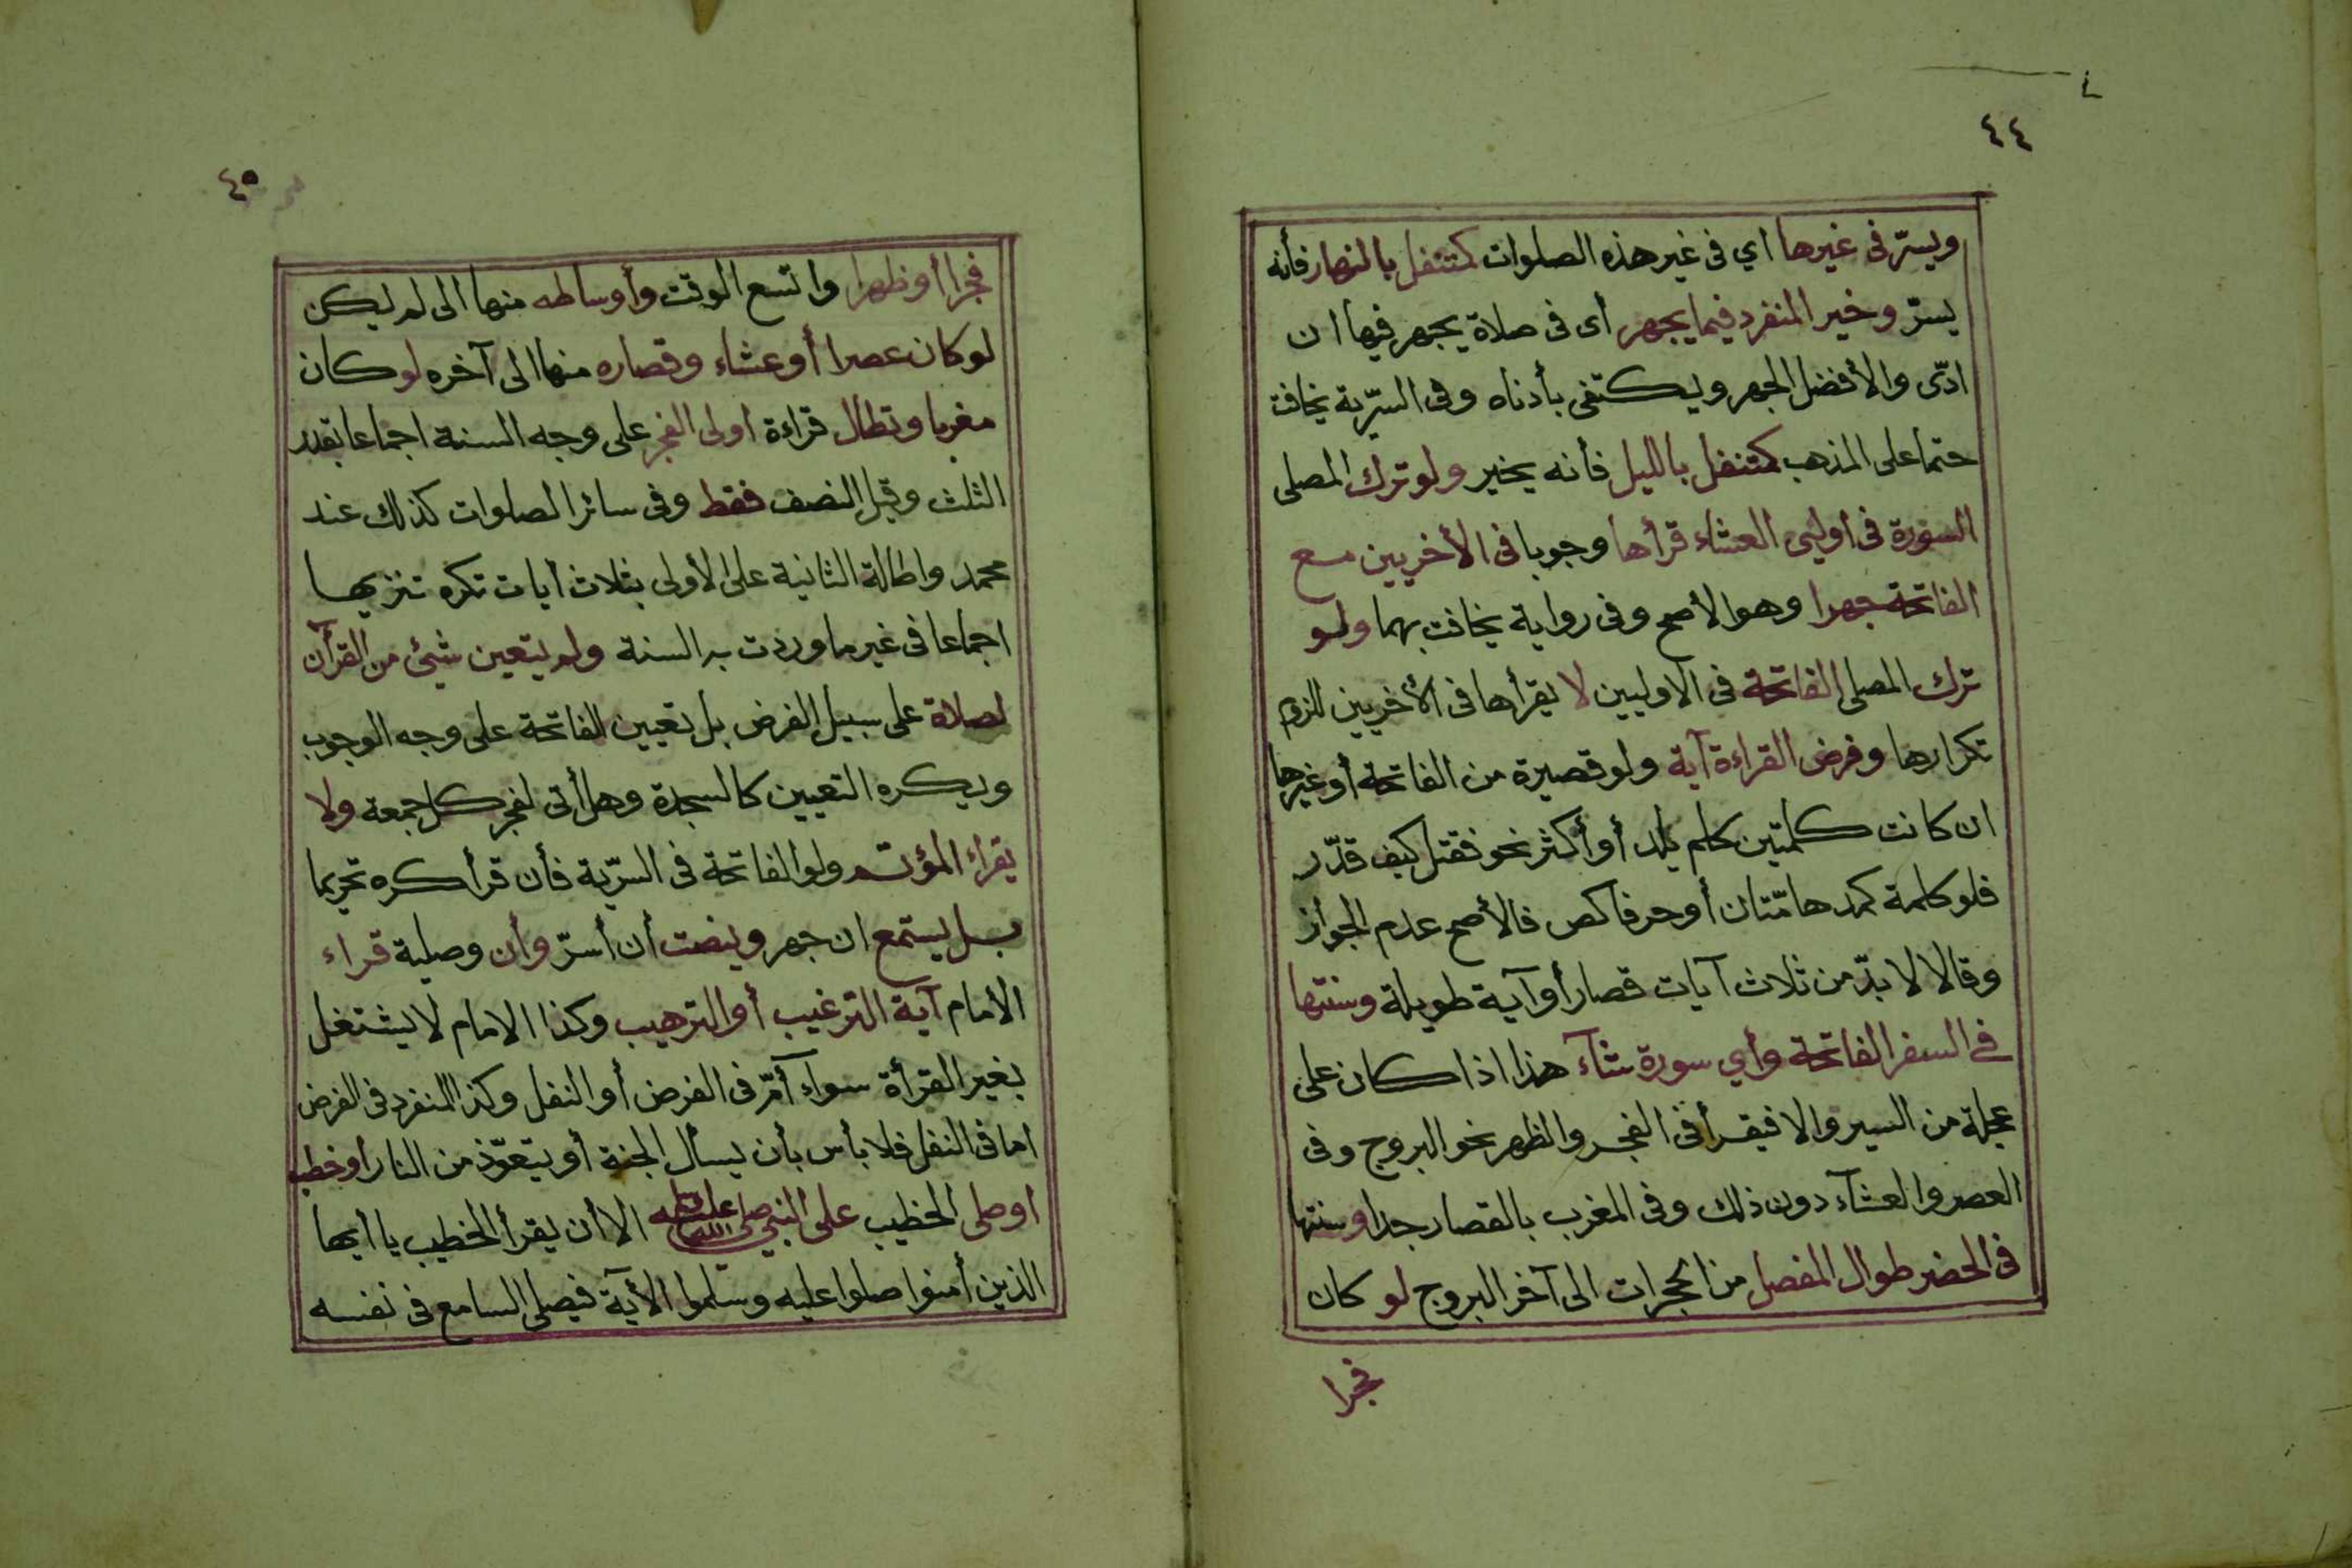 ٤٤
ويسرّ فى غيرها اي فى غير هذه الصلوات كمتنفل بالنهار فأنه
يسرّ وخير المنفرد فيما يجهر أى فى صلاة يجهر فيها ان
ادّى والأفضل الجهر ويكتفى بأدناه وفى السرّية يخافت
حتما على المذهب كمتنفل بالليل فأنه يخير ولو ترك المصلى
السورة فى اوليى العشاء قرأها وجوبا فى الأخريين مع
الفاتحة جهرا وهو الأصح وفى رواية يخافت بهما ولو
ترك المصلى الفاتحة فى الاوليين لا يقرأها فى الأخريين للزوم
تكرارها وفرض القراءة آية ولو قصيرة من الفاتحة أو غيرها
ان كانت كلمتين كلم يلد أو أكثر نحو فقتل كيف قدّر
فلو كلمة كمدهامّتان أو حرفا كص فالأصح عدم الجواز
وقالا لا بدّ من ثلاث آيات قصار أو آية طويلة وسنتها
فى السفر الفاتحة وأي سورة شآء هذا اذا كان على
عجلة من السير والا فيقرأ فى الفجر والظهر نحو البروج وفى
العصر والعشآء دون ذلك وفى المغرب بالقصار جدا وسنتها
فى الحضر طوال المفصل من الحجرات الى آخر البروج لو كان
فجرا
٤٥
فجرا أو ظهرا واتسع الوقت وأوساطه منها الى لم يكن
لو كان عصرا أو عشاء وقصاره منها الى آخره لو كان
مغربا وتطال قراءة اولى الفجر على وجه السنة اجماعا بقدر
الثلث وقيل النصف فقط وفى سائر الصلوات كذلك عند
محمد واطالة الثانية على الأولى بثلاث أيات تكره تنزيها
اجماعا فى غير ما وردت به السنة ولم يتعين شيئ من القرآن
لصلاة على سبيل الفرض بل تعيين الفاتحة على وجه الوجوب
ويكره التعيين كالسجدة وهل أتى لفجر كل جمعة ولا
يقراء المؤتم ولو الفاتحة فى السرّية فأن قرأ كره تحريما
بل يستمع ان جهر وينصت أن أسرّ وأن وصلية قراء
الأمام آية الترغيب أو الترهيب وكذا الامام لا يشتغل
بغير القرأة سواء آمّ فى الفرض أو النفل وكذا المنفرد فى الفرض
اما فى النفل فلا بأس بأن يسأل الجنة أو يتعوّذ من النار أو خطب
او صلى الخطيب على النبي صلى الله عليه وسلم الا أن يقرأ الخطيب يا أيها
الذين أمنوا صلوا عليه وسلموا الأية فيصلى السامع فى نفسه